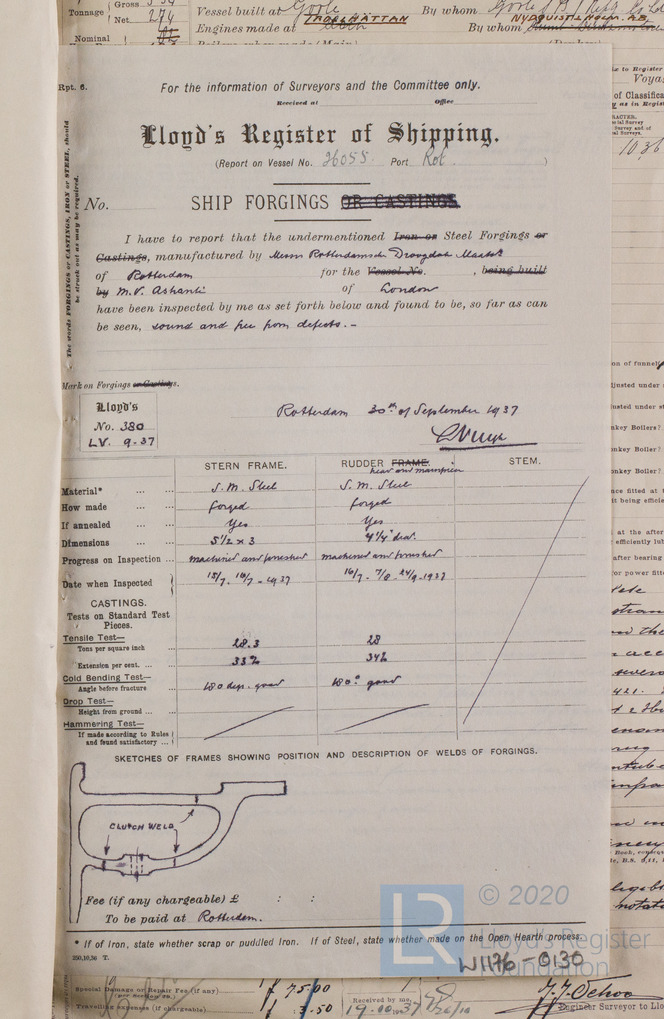 Tonnage
Gross
Net 274
Nominal
Vessel built at Goole
By whom Goole
Engines made at TROLLHÄTTAN
By whom NYDQUIST & HOLM A.B.
Rpt. 6.
For the information of Surveyors and the Committee only.
Received at Office
Lloyd's Register of Shipping.
(Report on Vessel No. 36055. Port Rot. )
The words FORGINGS or CASTINGS, IRON or STEEL, should
be struck out as may be required.
No. SHIP FORGINGS OR CASTINGS
I have to report that the undermentioned Iron or Steel Forgings or
Castings, manufactured by Messrs Rotterdamsche Droogdok Maats
of Rotterdam for the Vessel No. , being built
by M.V. Ashanti of London
have been inspected by me as set forth below and found to be, so far as can
be seen, sound and free from defects.-
Mark on Forgings or Castings.
Lloyd's
No. 380
LV. 9-37
Rotterdam 30th of September 1937
STERN FRAME. RUDDER FRAME. STEM.
head and mainpiece
Material* ... ... S. M. Steel S. M. Steel
How made ... ... forged forged
If annealed ... ... Yes Yes
Dimensions ... ... 5 1/2 x 3 4 1/4" dia.
Progress on Inspection ... machined and finished machined and finished
Date when Inspected 15/7. 16/7 - 1937 16/7 - 7/8 - 24/9 - 1937
CASTINGS.
Tests on Standard Test
Pieces.
Tensile Test—
Tons per square inch 28.3 28
Extension per cent. ... 33% 34%
Cold Bending Test—
Angle before fracture ... 180 degr. good 180° good
Drop Test—
Height from ground ...
Hammering Test—
If made according to Rules
and found satisfactory ...
SKETCHES OF FRAMES SHOWING POSITION AND DESCRIPTION OF WELDS OF FORGINGS.
CLUTCH WELD
Fee (if any chargeable) £ : :
To be paid at Rotterdam.
* If of Iron, state whether scrap or puddled Iron. If of Steel, state whether made on the Open Hearth process.
250,10,36 T.
© 2020
LR
Lloyd's Register
Foundation
W1176-0130
Special Damage or Repair Fee (if any) 75.00
Travelling expenses (if chargeable) 3.50
Received by me
Engineer Surveyor to Llo